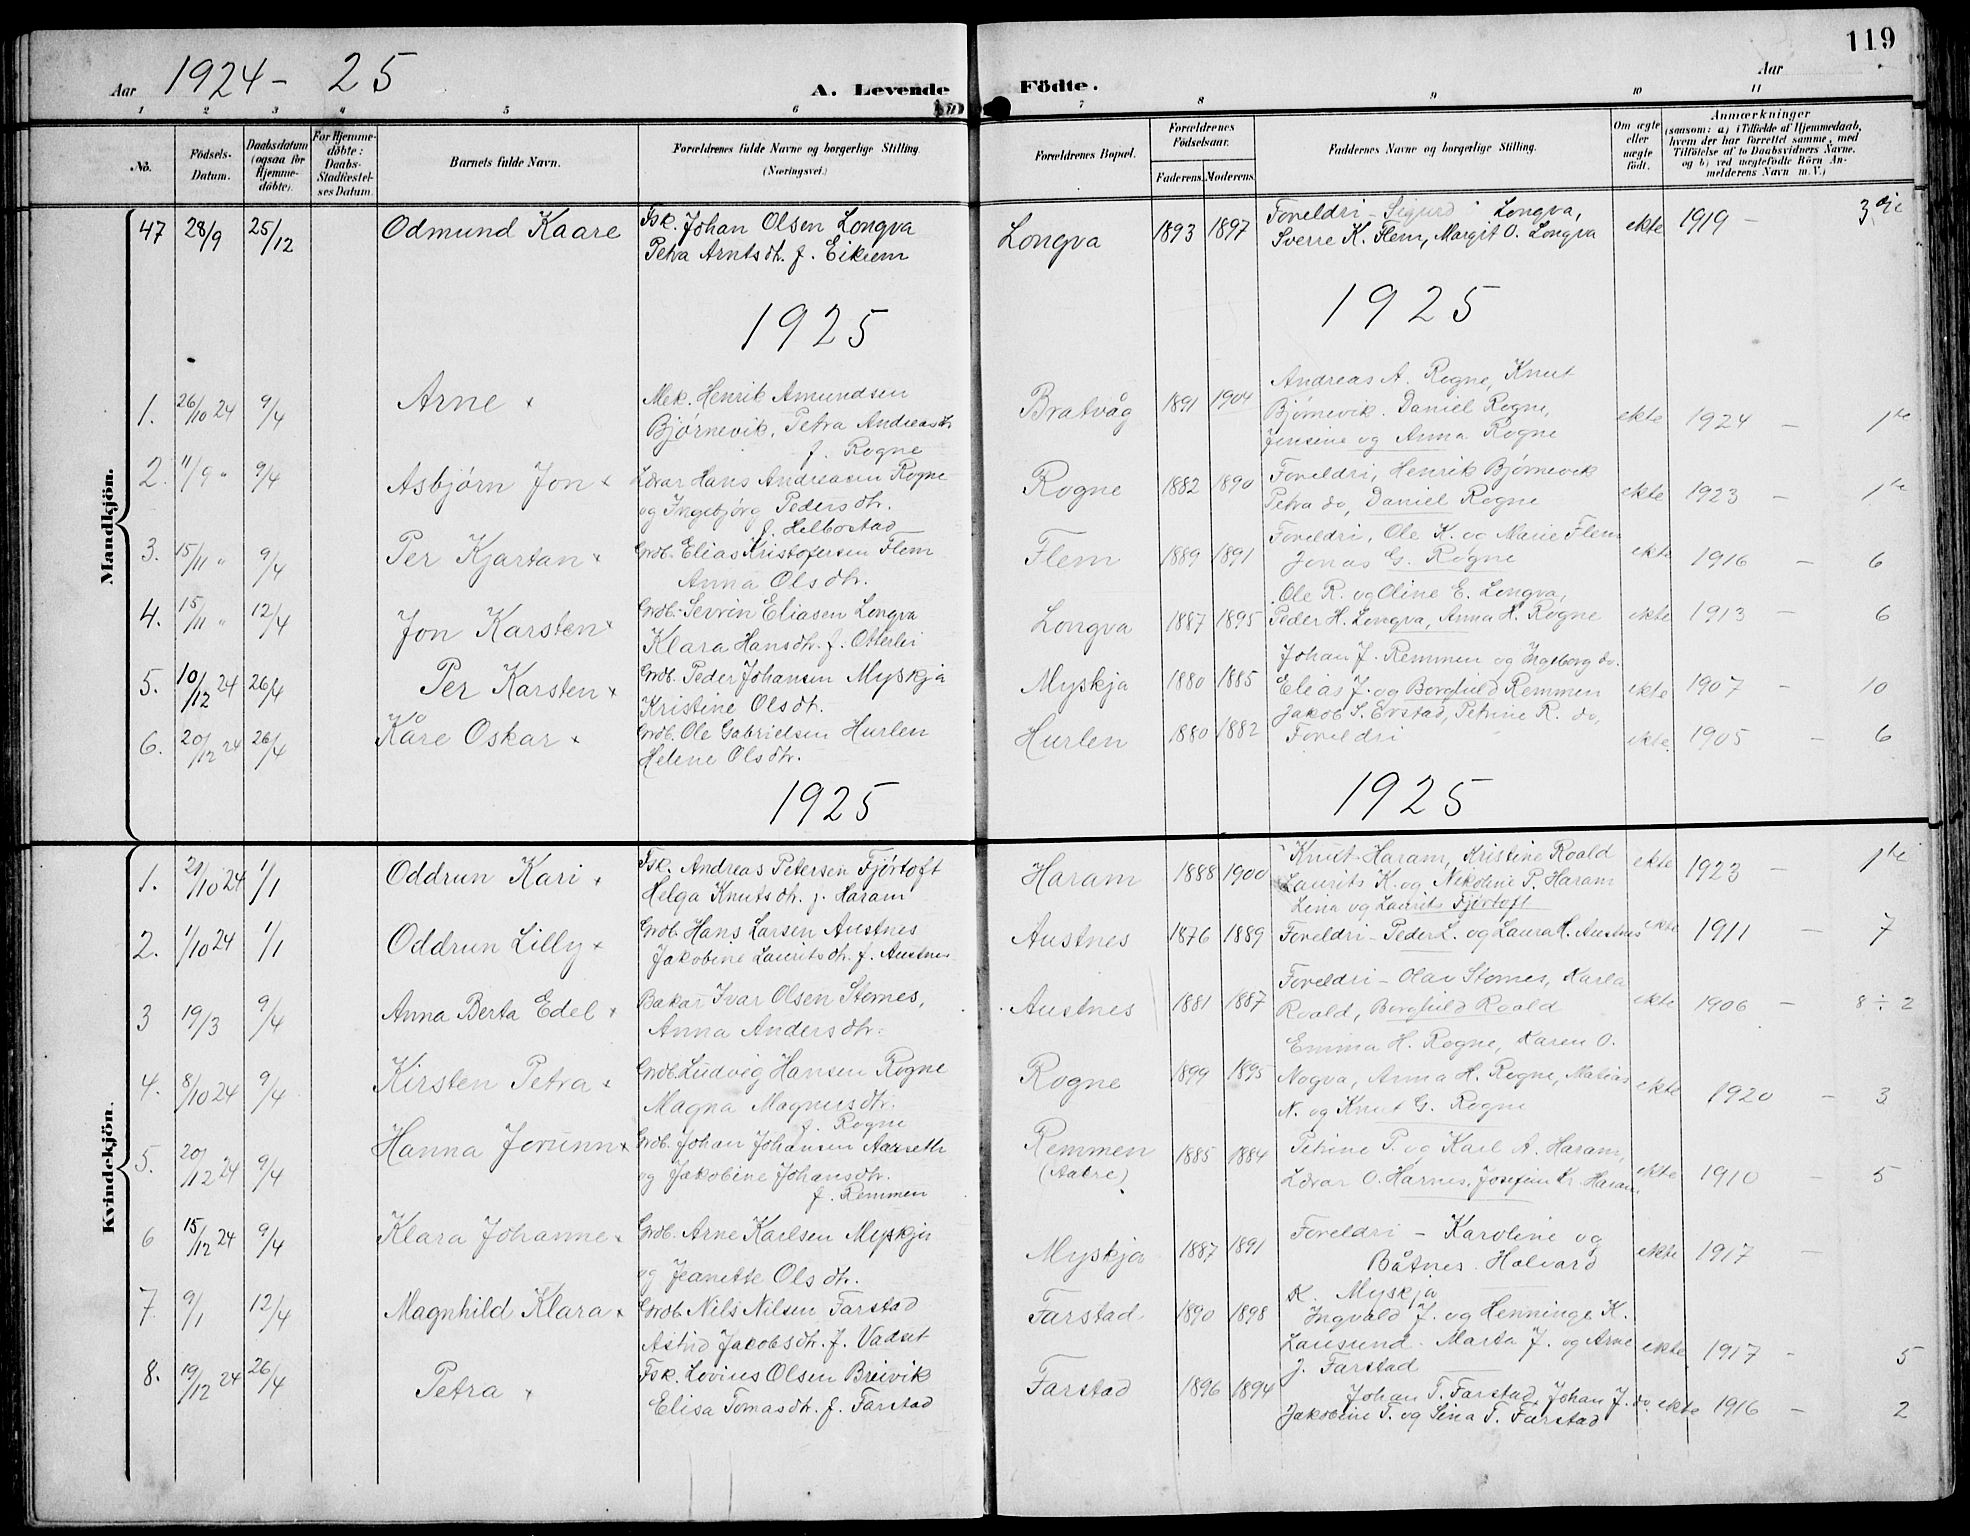 119
Aar 1924 - 25
A. Levende Födte.
Aar
1 2 3 4 5 6 7 8 9 10 11
No.
Födsels-Datum.
Daabsdatum (ogsaa for Hjemmedöbte).
For Hjemmedöbte: Daabs-Stadfæstelses Datum.
Barnets fulde Navn.
Forældrenes fulde Navne og borgerlige Stilling.
(Næringsvei.)
Forældrenes Bopæl.
Forældrenes Födselsaar.
Faderens. Moderens.
Faddernes Navne og borgerlige Stilling.
Om ægte eller uægte födt.
Anmærkninger
(saasom: a) i Tilfælde af Hjemmedaab, hvem der har forrettet samme, med Tilföielse af to Daabsvidners Navne, og b) ved uegtefödte Börn Anmelderens Navn m. V.)
Mandkjön.
47 28/9 25/12 Odmund Kaare Fsk. Johan Olsen Longva Longva 1893 1897 Foreldri - Sigurd Longva, ekte 1919 - 3dje
Petra Arntsdtr. f. Eikrem Sverre K. Flem, Margit O. Longva
1925 1925
1. 26/10 24 9/4 Arne x Mek. Henrik Amundsen Bratvåg 1891 1904 Andreas A. Rogne, Knut ekte 1924 - 1te
Bjørnevik, Petra Andreasdtr. Bjørnevik. Daniel Rogne,
f. Rogne Jensine og Anna Rogne
2. 11/9 " 9/4 Asbjørn Jon x Lærar Hans Andreasen Rogne Rogne 1882 1890 Foreldri, Henrik Bjørnevik ekte 1923 - 1te
og Ingebjørg Pedersdtr. Petra do, Daniel Rogne
f. Helbostad
3. 15/11 " 9/4 Per Kjartan x Grdb. Elias Kristofersen Flem Flem 1889 1891 Foreldri, Ole K. og Marie Flem ekte 1916 - 6
Anna Olsdtr. Jonas G. Rogne
4. 15/11 " 12/4 Jon Karsten x Grdb. Sevrin Eliasen Longva Longva 1887 1895 Ole R. og Oline E. Longva, ekte 1913 - 6
Klara Hansdtr. f. Otterlei Peder H. Longva, Anna H. Rogne
5. 10/12 24 26/4 Per Karsten x Grdb. Peder Johansen Myskja Myskja 1880 1885 Johan J. Remmen og Ingeborg do. ekte 1907 - 10
Kristine Olsdt. Elias J. og Borghild Remmen
6. 20/12 24 26/4 Kåre Oskar x Grdb. Ole Gabrielsen Hurlen Hurlen 1880 1882 Jakob S. Evstad, Petrine R. do, ekte. 1905 - 6
Helene Olsdtr. Foreldri
1925 1925
Kvindekjön.
1. 21/10 24 1/1 Oddrun Kari x Fsk. Andreas Petersen Fjørtoft Haram 1888 1900 Knut Haram, Kristine Roald ekte 1923 - 1te
Helga Knutsdtr. f. Haram Laurits K. og Nikoline P. Haram
Lina og Laurits Fjørtoft
2. 1/10 24 1/1 Oddrun Lilly x Grdb. Hans Larsen Austnes Austnes 1876 1889 Foreldri - Peder L. og Laura H. Austnes ekte 1911 - 7
Jakobine Lauritsdtr. f. Austnes
3 19/3 9/4 Anna Berta Edel x Bakar Ivar Olsen Stornes, Austnes 1881 1887 Foreldri - Olav Stornes, Karla ekte 1906 - 8 ÷ 2
Anna Andersdtr. Roald, Borghild Roald
4. 8/10 24 9/4 Kirsten Petra x Grdb. Ludvig Hansen Rogne Rogne 1899 1895 Emma H. Rogne, Karen O. ekte 1920 - 3
Magna Magnusdtr. Nogva, Anna H. Rogne, Matias
f. Rogne N. og Knut G. Rogne
5. 20/12 24 9/4 Hanna Jorunn x Grdb. Johan Johansen Aarseth Remmen 1885 1884 Petrine P. og Karl A. Haram, ekte 1910 - 5
og Jakobine Johansdtr. (Aakre) Lærar O. Harnes, Josefine Kr. Haram
f. Remmen
6 15/12 24 9/4 Klara Johanne x Grdb. Arne Karlsen Myskja Myskja 1887 1891 Foreldri - Karoline og ekte 1917 -
og Jeanette Olsdtr. Båtnes. Halvard
K. Myskja
7. 9/1 12/4 Magnhild Klara x Grdb. Nils Nilsen Farstad Farstad 1890 1898 Ingvald J. og Henninge K. ekte 1917 - 5
Astrid Jakobsdtr. f. Vadset Lausund. Marta J. og Arne
J. Farstad
8. 19/12 24 26/4 Petra x Fsk. Lovius Olsen Breivik Farstad 1896 1894 Johan T. Farstad, Johan J. do. ekte 1916 - 2
Elisa Tomasdtr. f. Farstad Jakobine T. og Lina T. Farstad